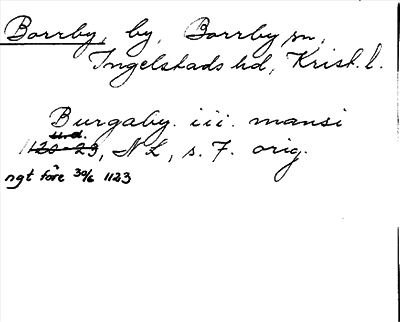 Borrby, by, Borrby sn,
Ingelstads hd, Krist. l.
Burgaby. iii. mansi
Urd.
1120-23, NL, s. 7. orig.
ngt före 30/6 1123